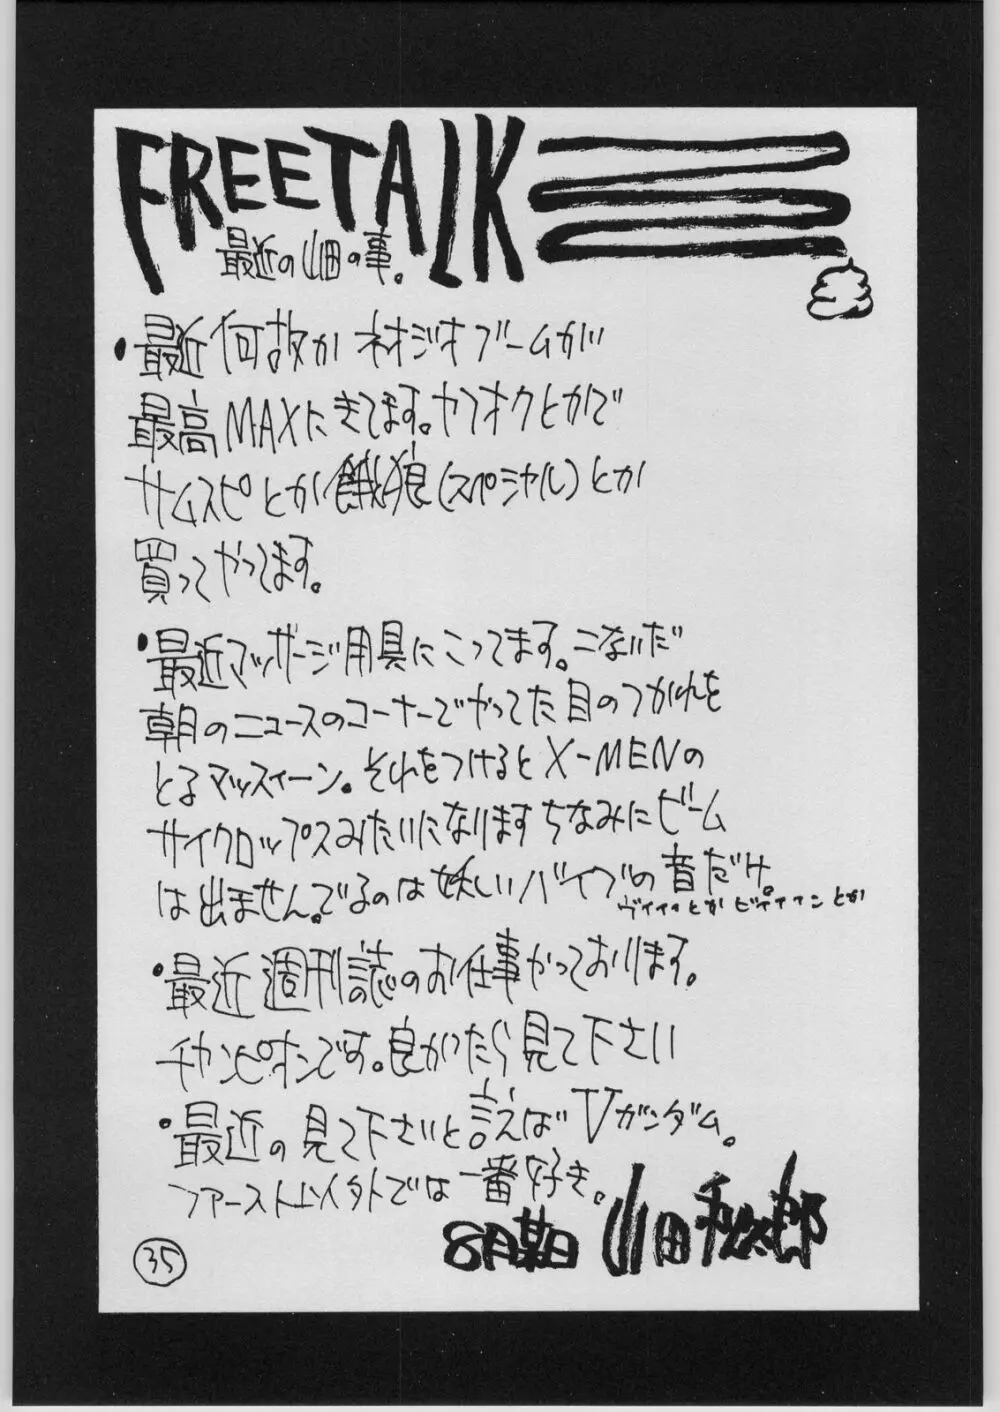 FREETALK
最近の山田の事。
・最近何故かネオジオブームが
最高MAXにきてます。ヤフオクとかで
サムスピとか餓狼(スペシャル)とか
買ってやってます。
・最近マッサージ用具にこってます。こないだ
朝のニュースのコーナーでやってた目のつかれを
とるマッスィーン。それをつけるとX-MENの
サイクロップスみたいになります ちなみにビーム
は出ません。でるのは妖しいバイブの音だけ。
ヴィィィとかピィィィンとか
・最近週刊誌のお仕事やっております。
チャンピオンです。良かったら見て下さい
・最近の見て下さいと言えばVガンダム。
ファースト以外では一番好き。
8月某日 山田秀太郎
35